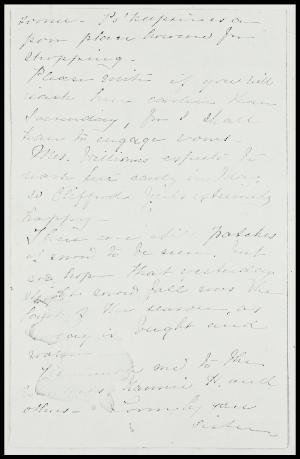 some. Po'keepsie is a
poor place however for
shopping.
Please write if you will
reach here earlier than
Saturday, for I shall
have to engage rooms.
Mrs. Williams expects to
reach here early in May;
so Clifford is extremely
happy.
There are still patches
of snow to be seen, but
we hope that yesterday
snow fall was the
last of the season, as
to-day is bright and
warm.
Remember me to the
Fannie H. and
others. Lovingly your
sister